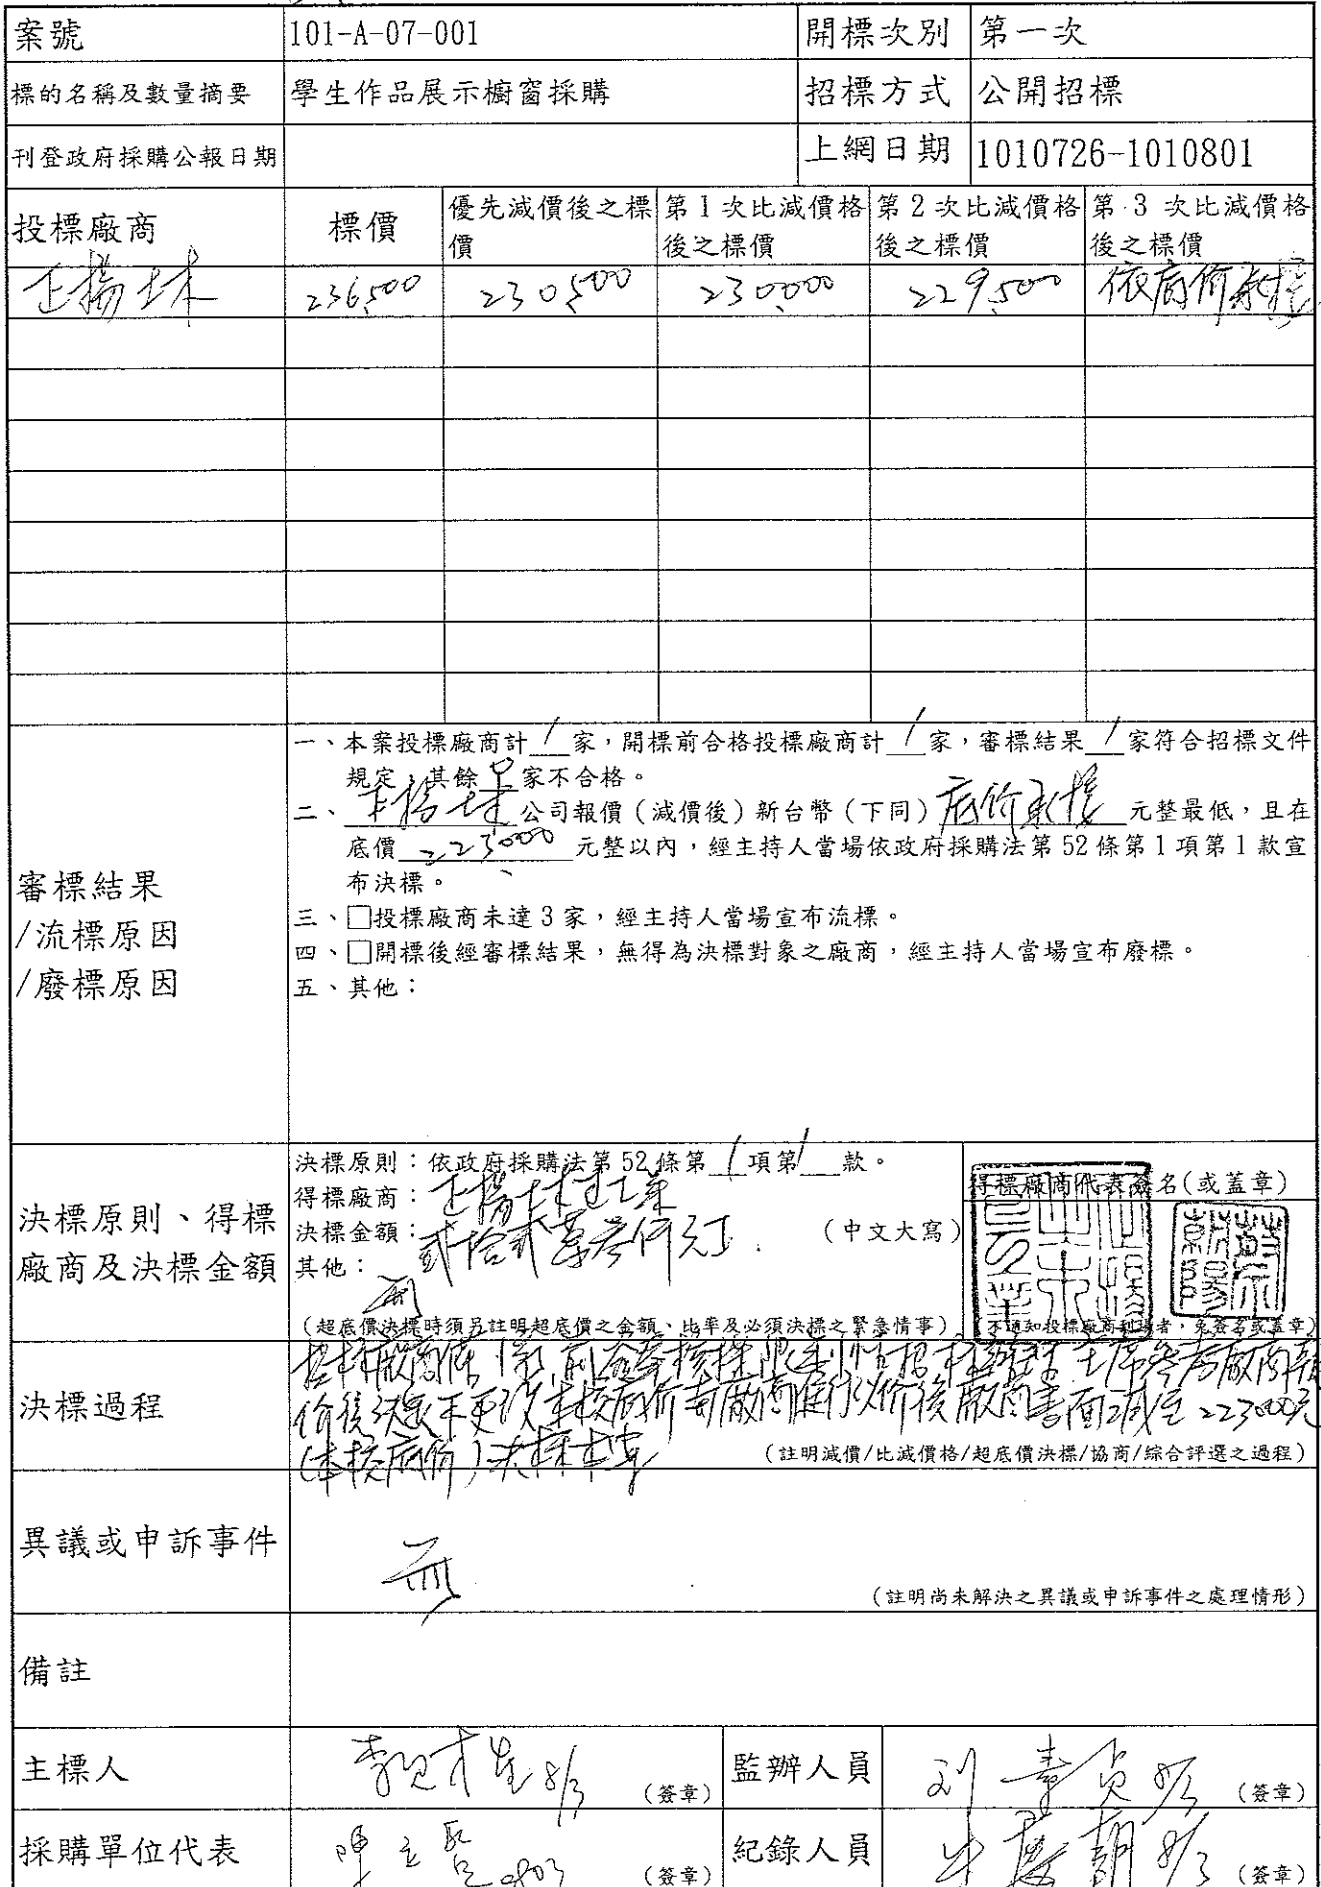 案號 101-A-07-001 開標次別 第一次
標的名稱及數量摘要 學生作品展示櫥窗採購 招標方式 公開招標
刊登政府採購公報日期 上網日期 1010726-1010801
投標廠商 標價 優先減價後之標價 第1次比減價格後之標價 第2次比減價格後之標價 第3次比減價格後之標價
正揚土木 236,500 230,500 230,000 229,500 依底价承接
審標結果
/流標原因
/廢標原因
一、本案投標廠商計1家,開標前合格投標廠商計1家,審標結果1家符合招標文件
規定,其餘0家不合格。
二、正揚土木公司報價(減價後)新台幣(下同)底价承接元整最低,且在
底價223,000元整以內,經主持人當場依政府採購法第52條第1項第1款宣
布決標。
三、□投標廠商未達3家,經主持人當場宣布流標。
四、□開標後經審標結果,無得為決標對象之廠商,經主持人當場宣布廢標。
五、其他:
決標原則、得標
廠商及決標金額
決標原則:依政府採購法第52條第1項第1款。
得標廠商:正揚土木
決標金額:貳拾貳萬參仟元正. (中文大寫)
其他:
(超底價決標時須另註明超底價之金額、比率及必須決標之緊急情事)
得標廠商代表簽名(或蓋章)
(不通知投標廠商到場者,免簽名或蓋章)
決標過程
主席參考廠商報
价後決定不更改本核底价 廠商書面減至223000元
(本核底价)決標
(註明減價/比減價格/超底價決標/協商/綜合評選之過程)
異議或申訴事件 無
(註明尚未解決之異議或申訴事件之處理情形)
備註
主標人 8/3 (簽章) 監辦人員 8/3 (簽章)
採購單位代表 0803 (簽章) 紀錄人員 8/3 (簽章)